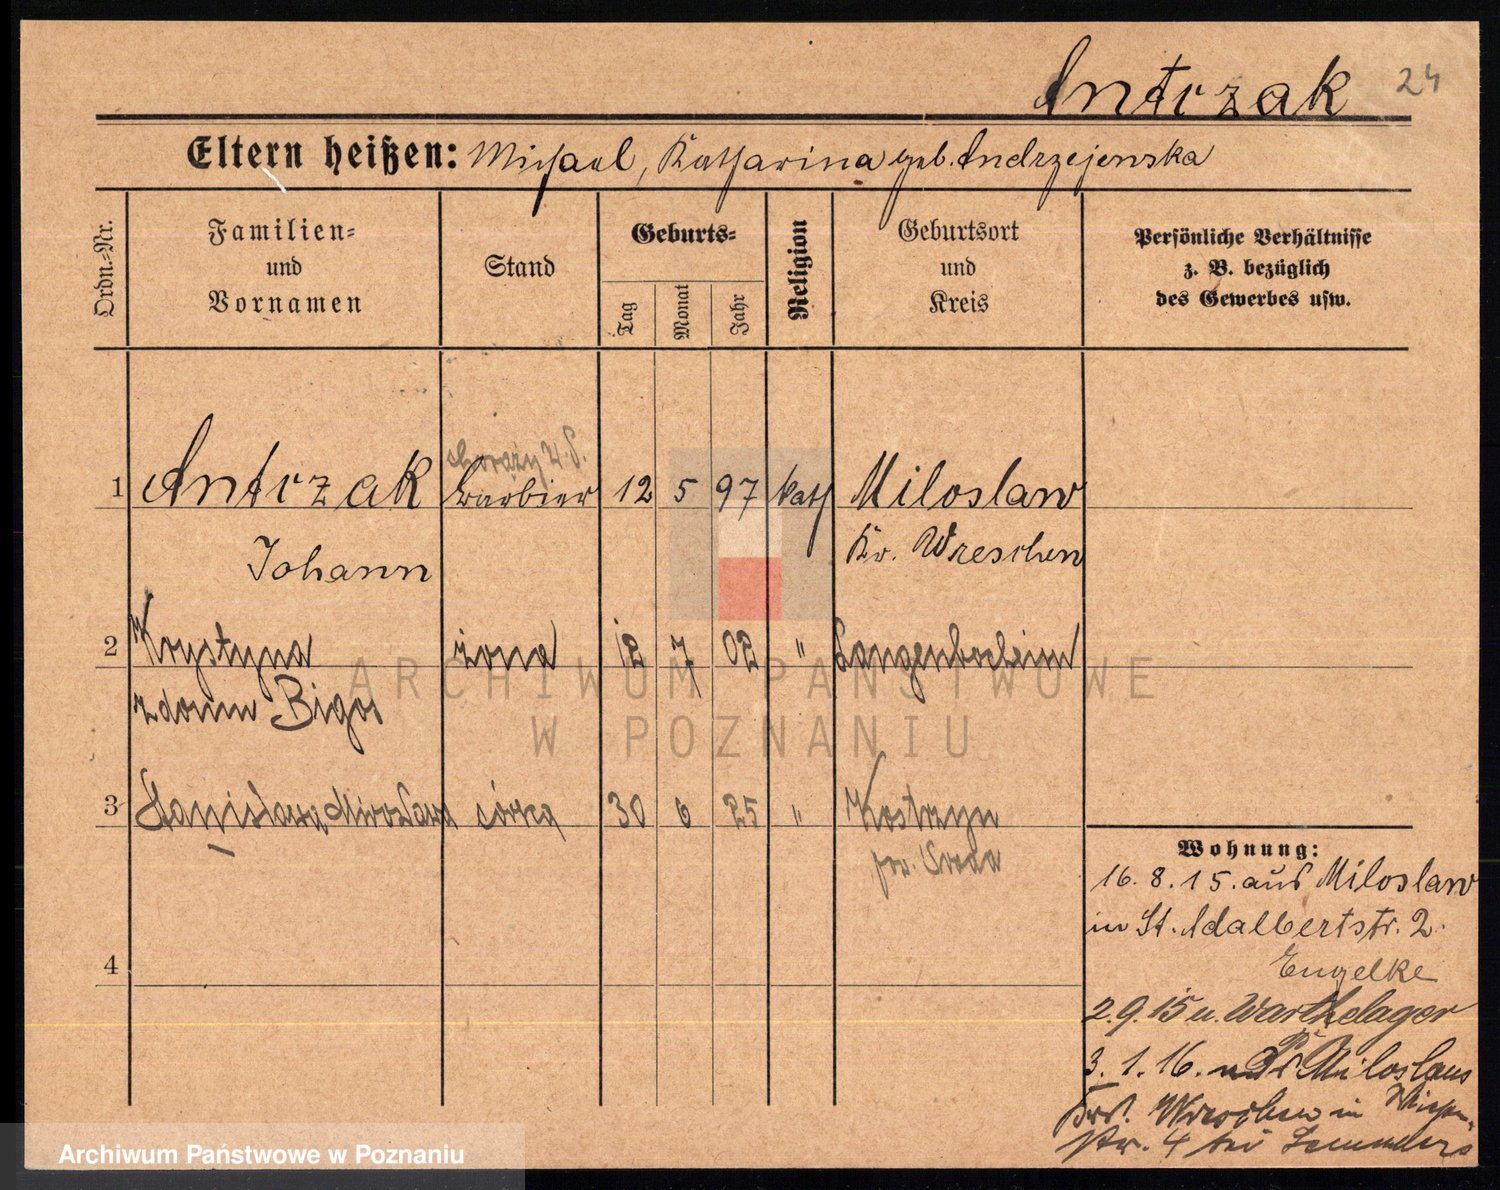 Antrzak 24
Eltern heißen: Michael, Katharina geb. Andrzejewska
Ordn.-Nr.
Familien-
und
Vornamen
Stand
Geburts-
Tag
Monat
Jahr
Religion
Geburtsort
und
Kreis
Persönliche Verhältnisse
z. B. bezüglich
des Gewerbes usw.
chorąży W.P.
1 Antrzak Barbier 12 5 97 kath Miloslaw
Johann Kr. Wreschen
2 Krystyna żona 12 7 02 "
z domu Bigos
3 Stanisława Mirosława córka 30 6 25 " Kostrzyn
pow. Środa
4
Wohnung:
16. 8. 15. aus Miloslaw
in St. Adalbertstr. 2.
Engelke
2. 9. 15 n. Warthelager
3. 1. 16. Miloslaus
Wreschen in
str. 4 bei
ARCHIWUM PAŃSTWOWE
W POZNANIU
Archiwum Państwowe w Poznaniu